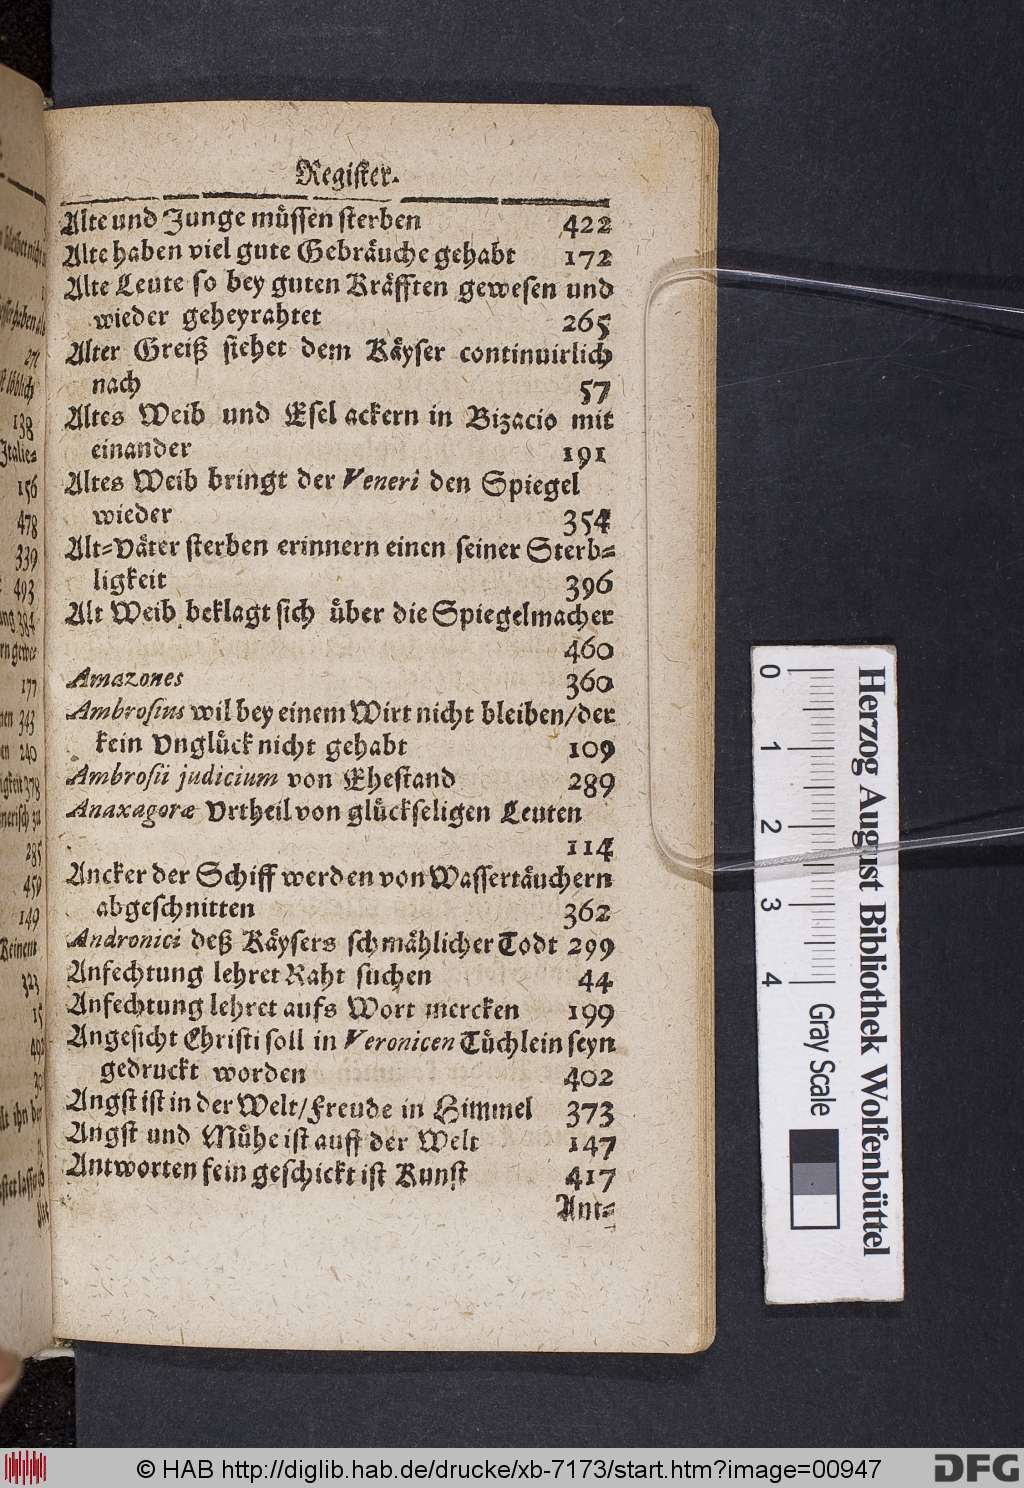 Register.
Alte und Junge müssen sterben 422
Alte haben viel gute Gebräuche gehabt 172
Alte Leute so bey guten Kräfften gewesen und
wieder geheyrahtet 265
Alter Greiß siehet dem Käyser continuirlich
nach 57
Altes Weib und Esel ackern in Bizacio mit
einander 191
Altes Weib bringt der Veneri den Spiegel
wieder 354
Alt-Väter sterben erinnern einen seiner Sterb-
ligkeit 396
Alt Weib beklagt sich über die Spiegelmacher
460
Amazones 360
Ambrosius wil bey einem Wirt nicht bleiben/der
kein Vnglück nicht gehabt 109
Ambrosii judicium von Ehestand 289
Anaxagoræ Vrtheil von glückseligen Leuten
114
Ancker der Schiff werden von Wassertäuchern
abgeschnitten 362
Andronici deß Käysers schmählicher Todt 299
Anfechtung lehret Raht suchen 44
Anfechtung lehret aufs Wort mercken 199
Angesicht Christi soll in Veronicen Tüchlein seyn
gedruckt worden 402
Angst ist in der Welt/Freude in Himmel 373
Angst und Mühe ist auff der Welt 147
Antworten fein geschickt ist Kunst 417
Ant-
271
138
Italie-
156
478
339
493
384
177
343
240
378
285
459
149
323
15
0 1 2 3 4
Gray Scale
Herzog August Bibliothek Wolfenbüttel
© HAB http://diglib.hab.de/drucke/xb-7173/start.htm?image=00947
DFG